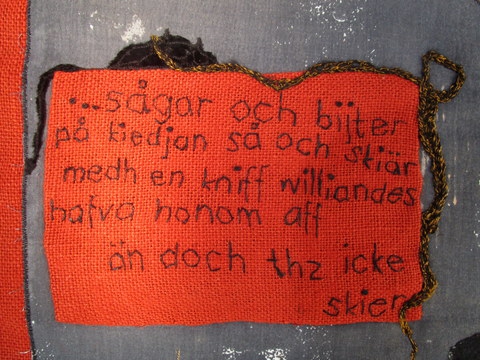 ...sågar och bijter
på kiedjan så och skiär
medh en kniff williandes
hafva honom aff
än doch thz icke
skier